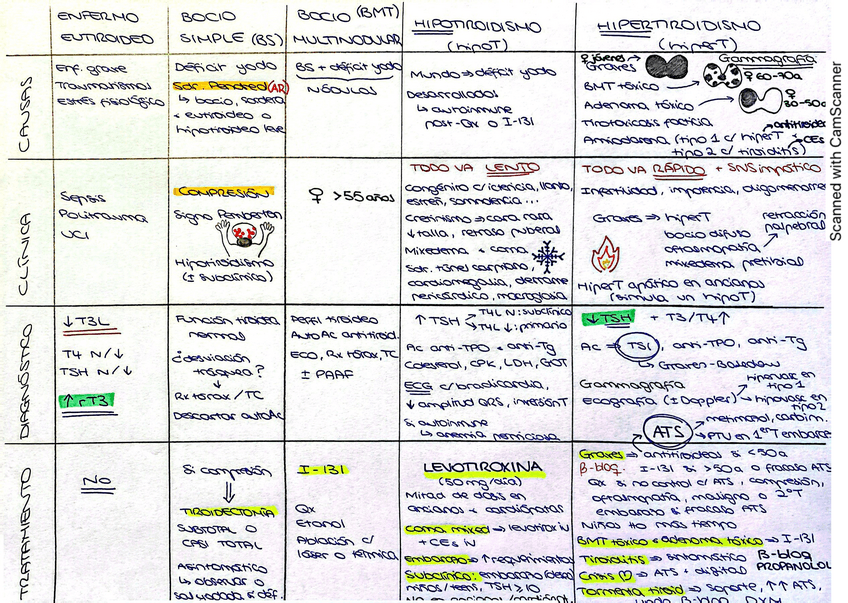 ENFERMO
EUTIROIDEO
BOCIO
SIMPLE (BS)
BOCIO (BMT)
MULTINODULAR
HIPOTIROIDISMO
(hipoT)
HIPERTIROIDISMO
(hiperT)
CAUSAS
Enf. grave
Traumatismos
Estrés fisiológico
Déficit yodo
Sdr. Pendred (AR)
↳ bocio, sordera
+ eutiroideo o
hipotiroideo leve
BS + déficit yodo
NÓDULOS
Mundo ⇒ déficit yodo
Desarrollados
↳ autoinmune
post-Qx o I-131
♀ jóvenes
Graves
Gammagrafía
♀ 60-70a
BMT tóxico
♀
30-50a
Adenoma tóxico
Tirotoxicosis facticia
antitiroideos
Amiodarona (tipo 1 c/ hiperT
CEs
tipo 2 c/ tiroiditis)
CLÍNICA
Sepsis
Politrauma
UCI
COMPRESIÓN
Signo Pemberton
Hipotiroidismo
(± subclínico)
♀ >55 años
TODO VA LENTO
Congénito c/ ictericia, llanto,
estreñ, somnolencia...
Cretinismo ⇒ cara rara
↓ talla, retraso puberal
Mixedema + coma
Sdr. túnel carpiano,
cardiomegalia, derrame
pericárdico, macroglosia
TODO VA RÁPIDO + SNSimpático
Infertilidad, impotencia, oligomenorrea
Graves ⇒ hiperT
bocio difuso
oftalmopatía
retracción
palpebral
mixedema pretibial
HiperT apático en ancianos
(simula un hipoT)
DIAGNÓSTICO
↓ T3L
T4 N/↓
TSH N/↓
↑ rT3
Función tiroidea
normal
¿desviación
tráquea?
↓
Rx tórax / TC
Descartar autoAc
Perfil tiroideo
AutoAc antitiroid.
ECO, Rx tórax, TC
± PAAF
↑ TSH T4L N: subclínico
T4L ↓: primario
Ac anti-TPO + anti-Tg
Colesterol, CPK, LDH, GOT
ECG c/ bradicardia,
↓ amplitud QRS, inversión T
Si autoinmune
↳ anemia perniciosa
↓ TSH + T3/T4 ↑
Ac ⇒ TSI, anti-TPO, anti-Tg
↳ Graves-Basedow
Gammagrafía
Ecografía (± Doppler)
hipervasc en
tipo 1
hipovasc en
tipo 2
ATS
metimazol, carbim.
PTU en 1er embarazo
TRATAMIENTO
No
Si compresión
⇓
TIROIDECTOMÍA
SUBTOTAL O
CASI TOTAL
Asintomático
↳ observar o
I-131
Qx
Etanol
Ablación c/
láser o térmica
LEVOTIROXINA
(50 mg/día)
Mitad de dosis en
ancianos + cardiópatas
Coma mixed ⇒ levotirox iv
+ CEs iv
Embarazo ⇒ ↑ requerimientos
Subclínico: embarazo/deseo
niños/teen, TSH ≥ 10
Graves ⇒ antitiroideos si <50a
β-bloq. I-131 si >50a o fracaso ATS
Qx si no control c/ ATS, compresión,
oftalmopatía, maligno o 2ºT
embarazo si fracaso ATS
Niños tto más tiempo
BMT tóxico + adenoma tóxico ⇒ I-131
Tiroiditis ⇒ sintomático β-bloq
PROPANOLOL
Crisis ♡ ⇒ ATS + digital
Tormenta tiroid ⇒ soporte, ↑↑ ATS,
Scanned with CamScanner